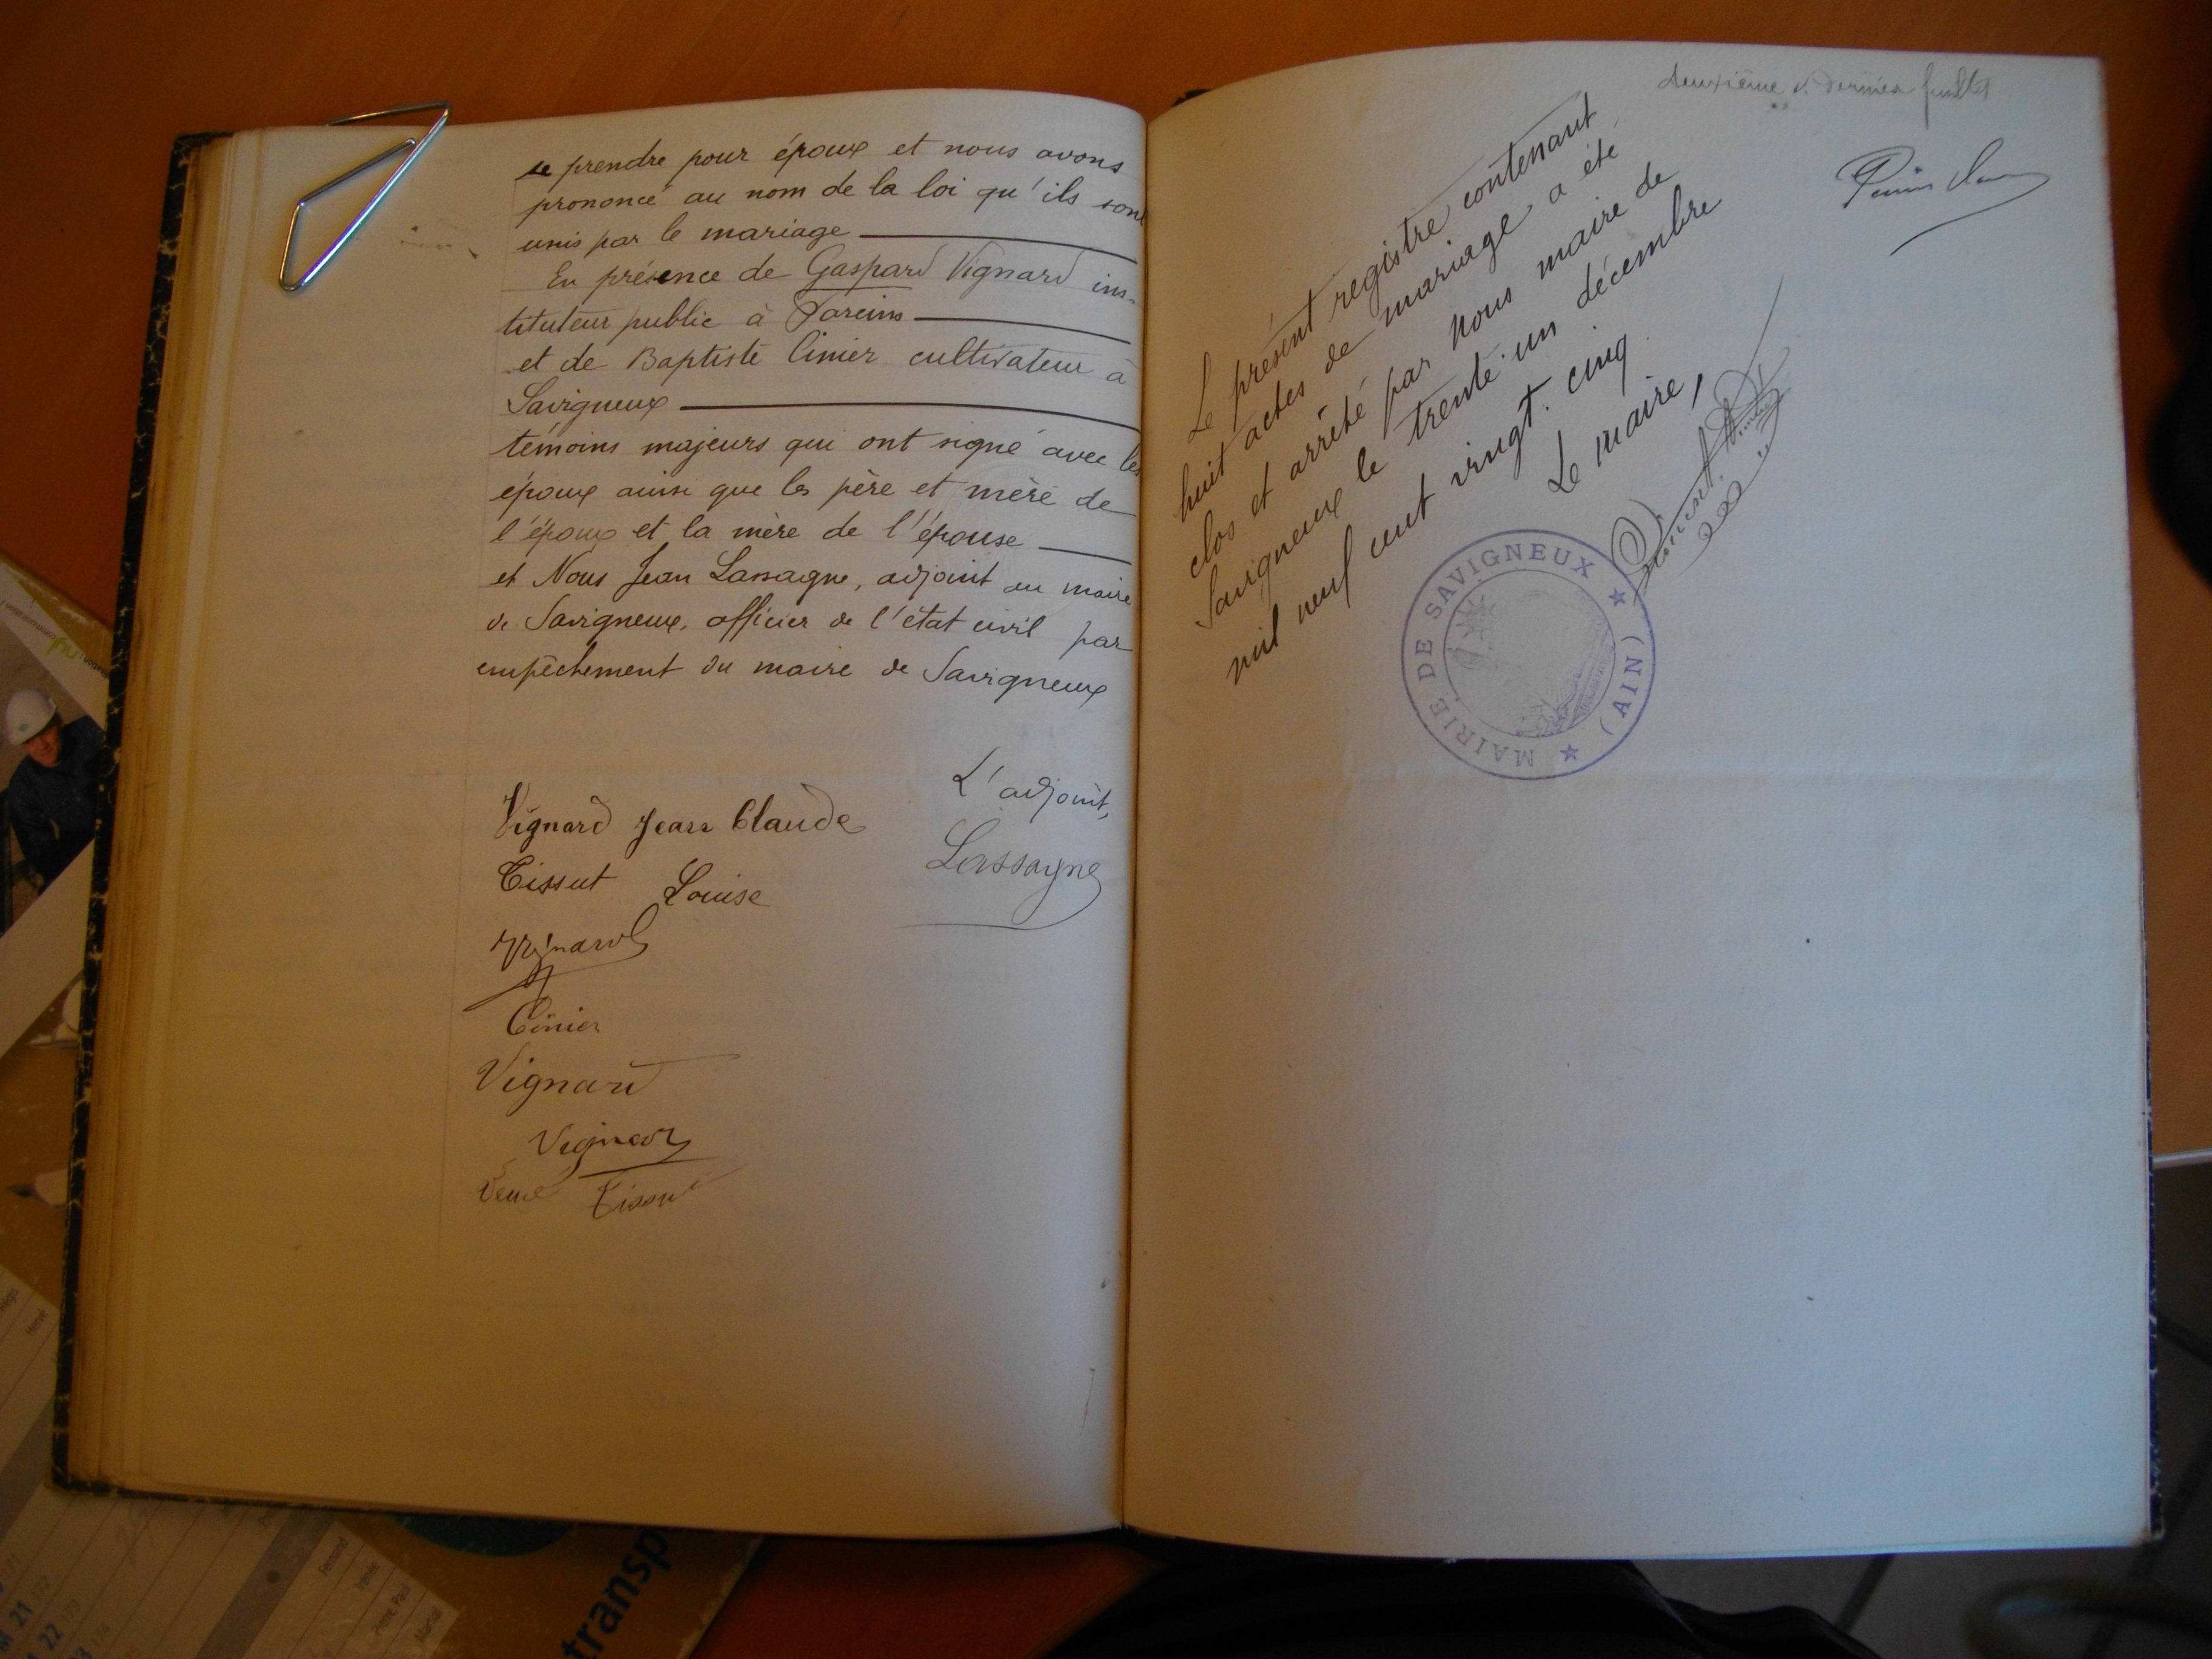 se prendre pour époux et nous avons
prononcé au nom de la loi qu'ils sont
unis par le mariage
En présence de Gaspard Vignard ins-
tituteur public à Parcins
et de Baptiste Cinier cultivateur à
Savigneux
témoins majeurs qui ont signé avec les
époux ainsi que les père et mère de
l'époux et la mère de l'épouse
et Nous Jean Lassagne, adjoint au maire
de Savigneux, officier de l'état civil par
empêchement du maire de Savigneux
L'adjoint,
Vignard Jean Claude
Lassagne
Tissut Louise
Vignard
Cinier
Vignard
Vignard
Veuve Tissut
deuxième et dernier feuillet
Le présent registre contenant
huit actes de mariage a été
clos et arrêté par nous maire de
Savigneux le trente un décembre
mil neuf cent vingt. cinq.
Le maire,
MAIRIE DE SAVIGNEUX
(AIN)
transp
21
22